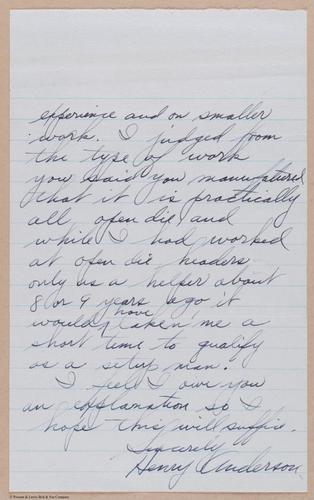 experience and on smaller
work. I judged from
the type of work
you said you manufactured
that it is practically
all open die and
while I had worked
at open die headers
only as a helper about
8 or 9 years ago it
would have taken me a
short time to qualify
as a setup man.
I feel I owe you
an explanation so I
hope this will suffice.
Sincerely
Henry Anderson